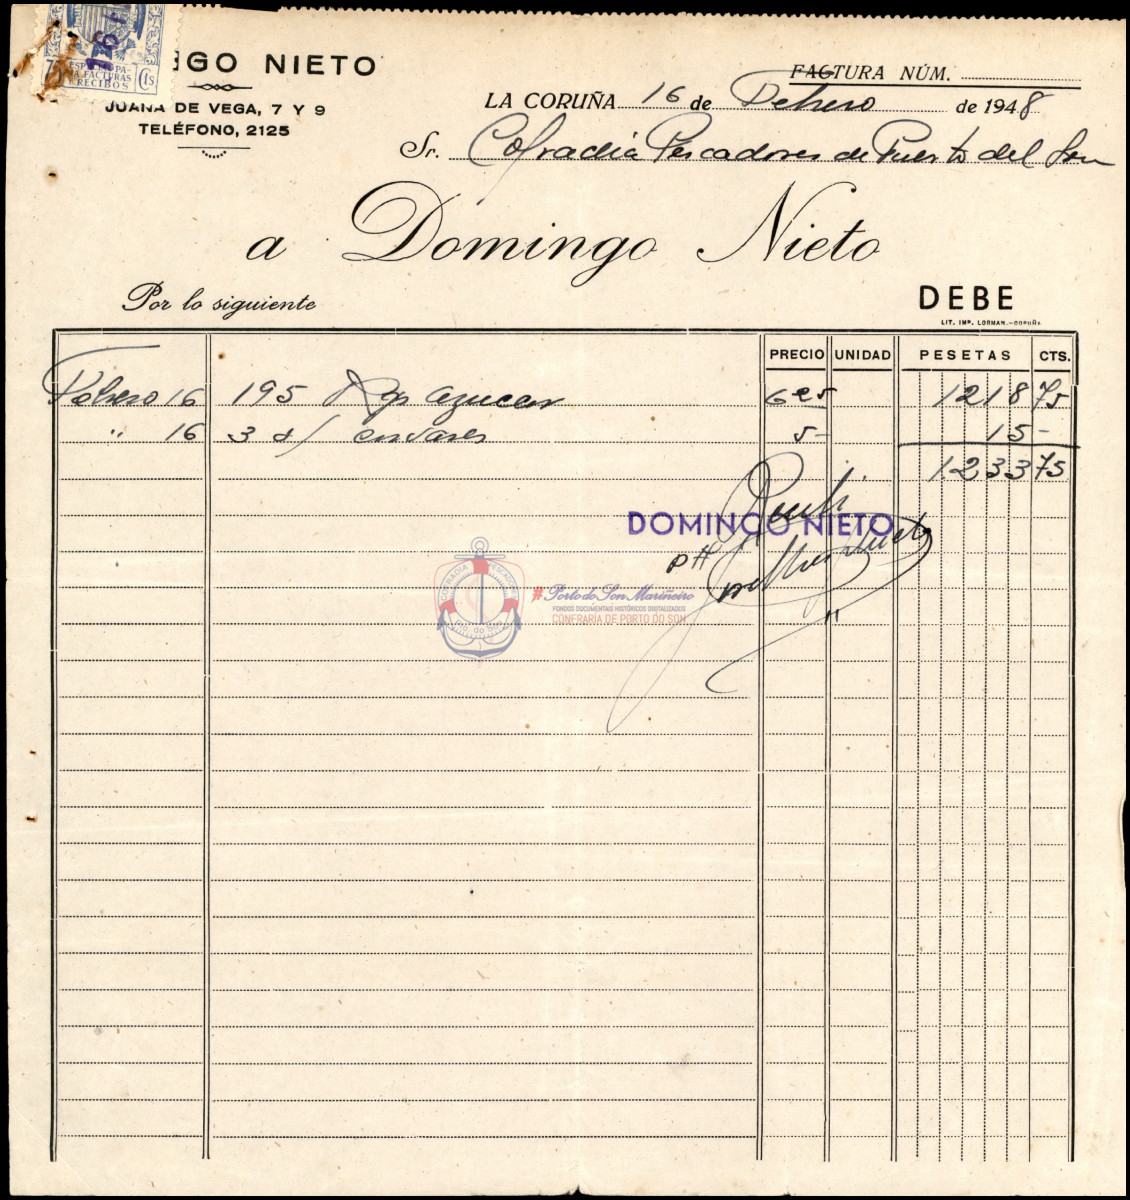 ESPECIAL PA-
RA FACTURAS
Y RECIBOS
75 Cts
16
GO NIETO
JUANA DE VEGA, 7 Y 9
TELÉFONO, 2125
FACTURA NÚM.
LA CORUÑA 16 de Febrero de 1948
Sr. Cofradia Pescadores de Puerto del Son
a Domingo Nieto
Por lo siguiente
DEBE
LIT. IMP. LORMAN.-CORUÑA
PRECIO UNIDAD PESETAS CTS.
Febrero 16 195 Kgs azucar 6 25 1218 75
" 16 3 s/ envases 5- 15 -
1.233 75
Recibi
DOMINGO NIETO
COFRADIA PESCADORES
Pto. do Son
#Porto do Son Mariñeiro
FONDOS DOCUMENTAIS HISTÓRICOS DIXITALIZADOS
CONFRARÍA DE PORTO DO SON